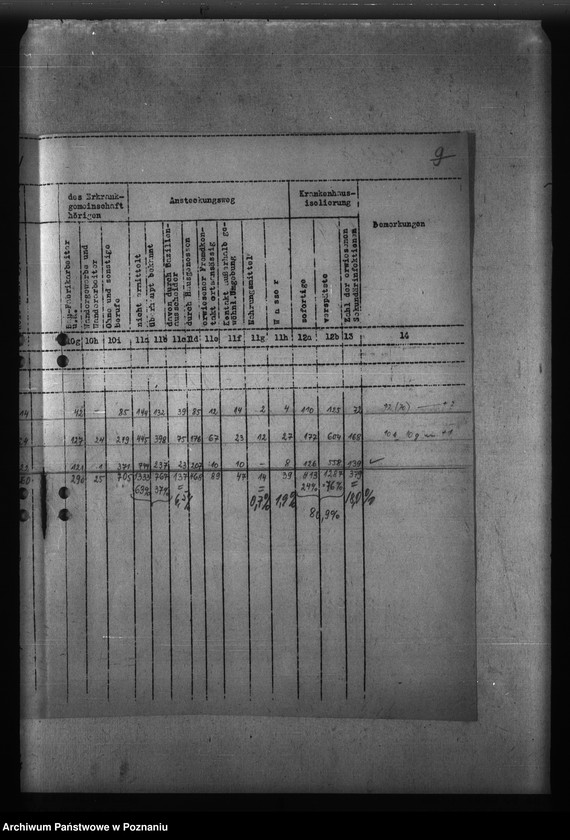 9
des Erkrank-
gemeinschaft
hörigen
Ansteckungsweg
Krankenhaus-
isolierung
Bemerkungen
Wandergewerbe und
Wanderarbeiter
Ohne und sonstige
Berufe
nicht ermittelt
überhaupt bekannt
davon durch Bazillen-
ausscheider
durch Hausgenossen
erwiesener Fremdkon-
takt ortsansässig
Kontakt außerhalb ge-
wöhnl. Umgebung
Nahrungsmittel
Wasser
sofortige
verspätete
Zahl der erwiesenen
Sekundärinfektionen
10g 10h 10i 11a 11b 11c 11d 11e 11f 11g 11h 12a 12b 13 14
42 - 85 144 132 39 85 12 14 2 4 110 125 72
127 24 249 445 398 75 176 67 23 12 27 177 604 168
121 1 371 744 237 23 207 10 10 - 8 126 558 139
290 25 705 1333 767 137 168 89 47 14 39 413 1287 379
63% 37% = = 24% 76% =
6,5% 0,7% 1,9%
80,9%
Archiwum Państwowe w Poznaniu